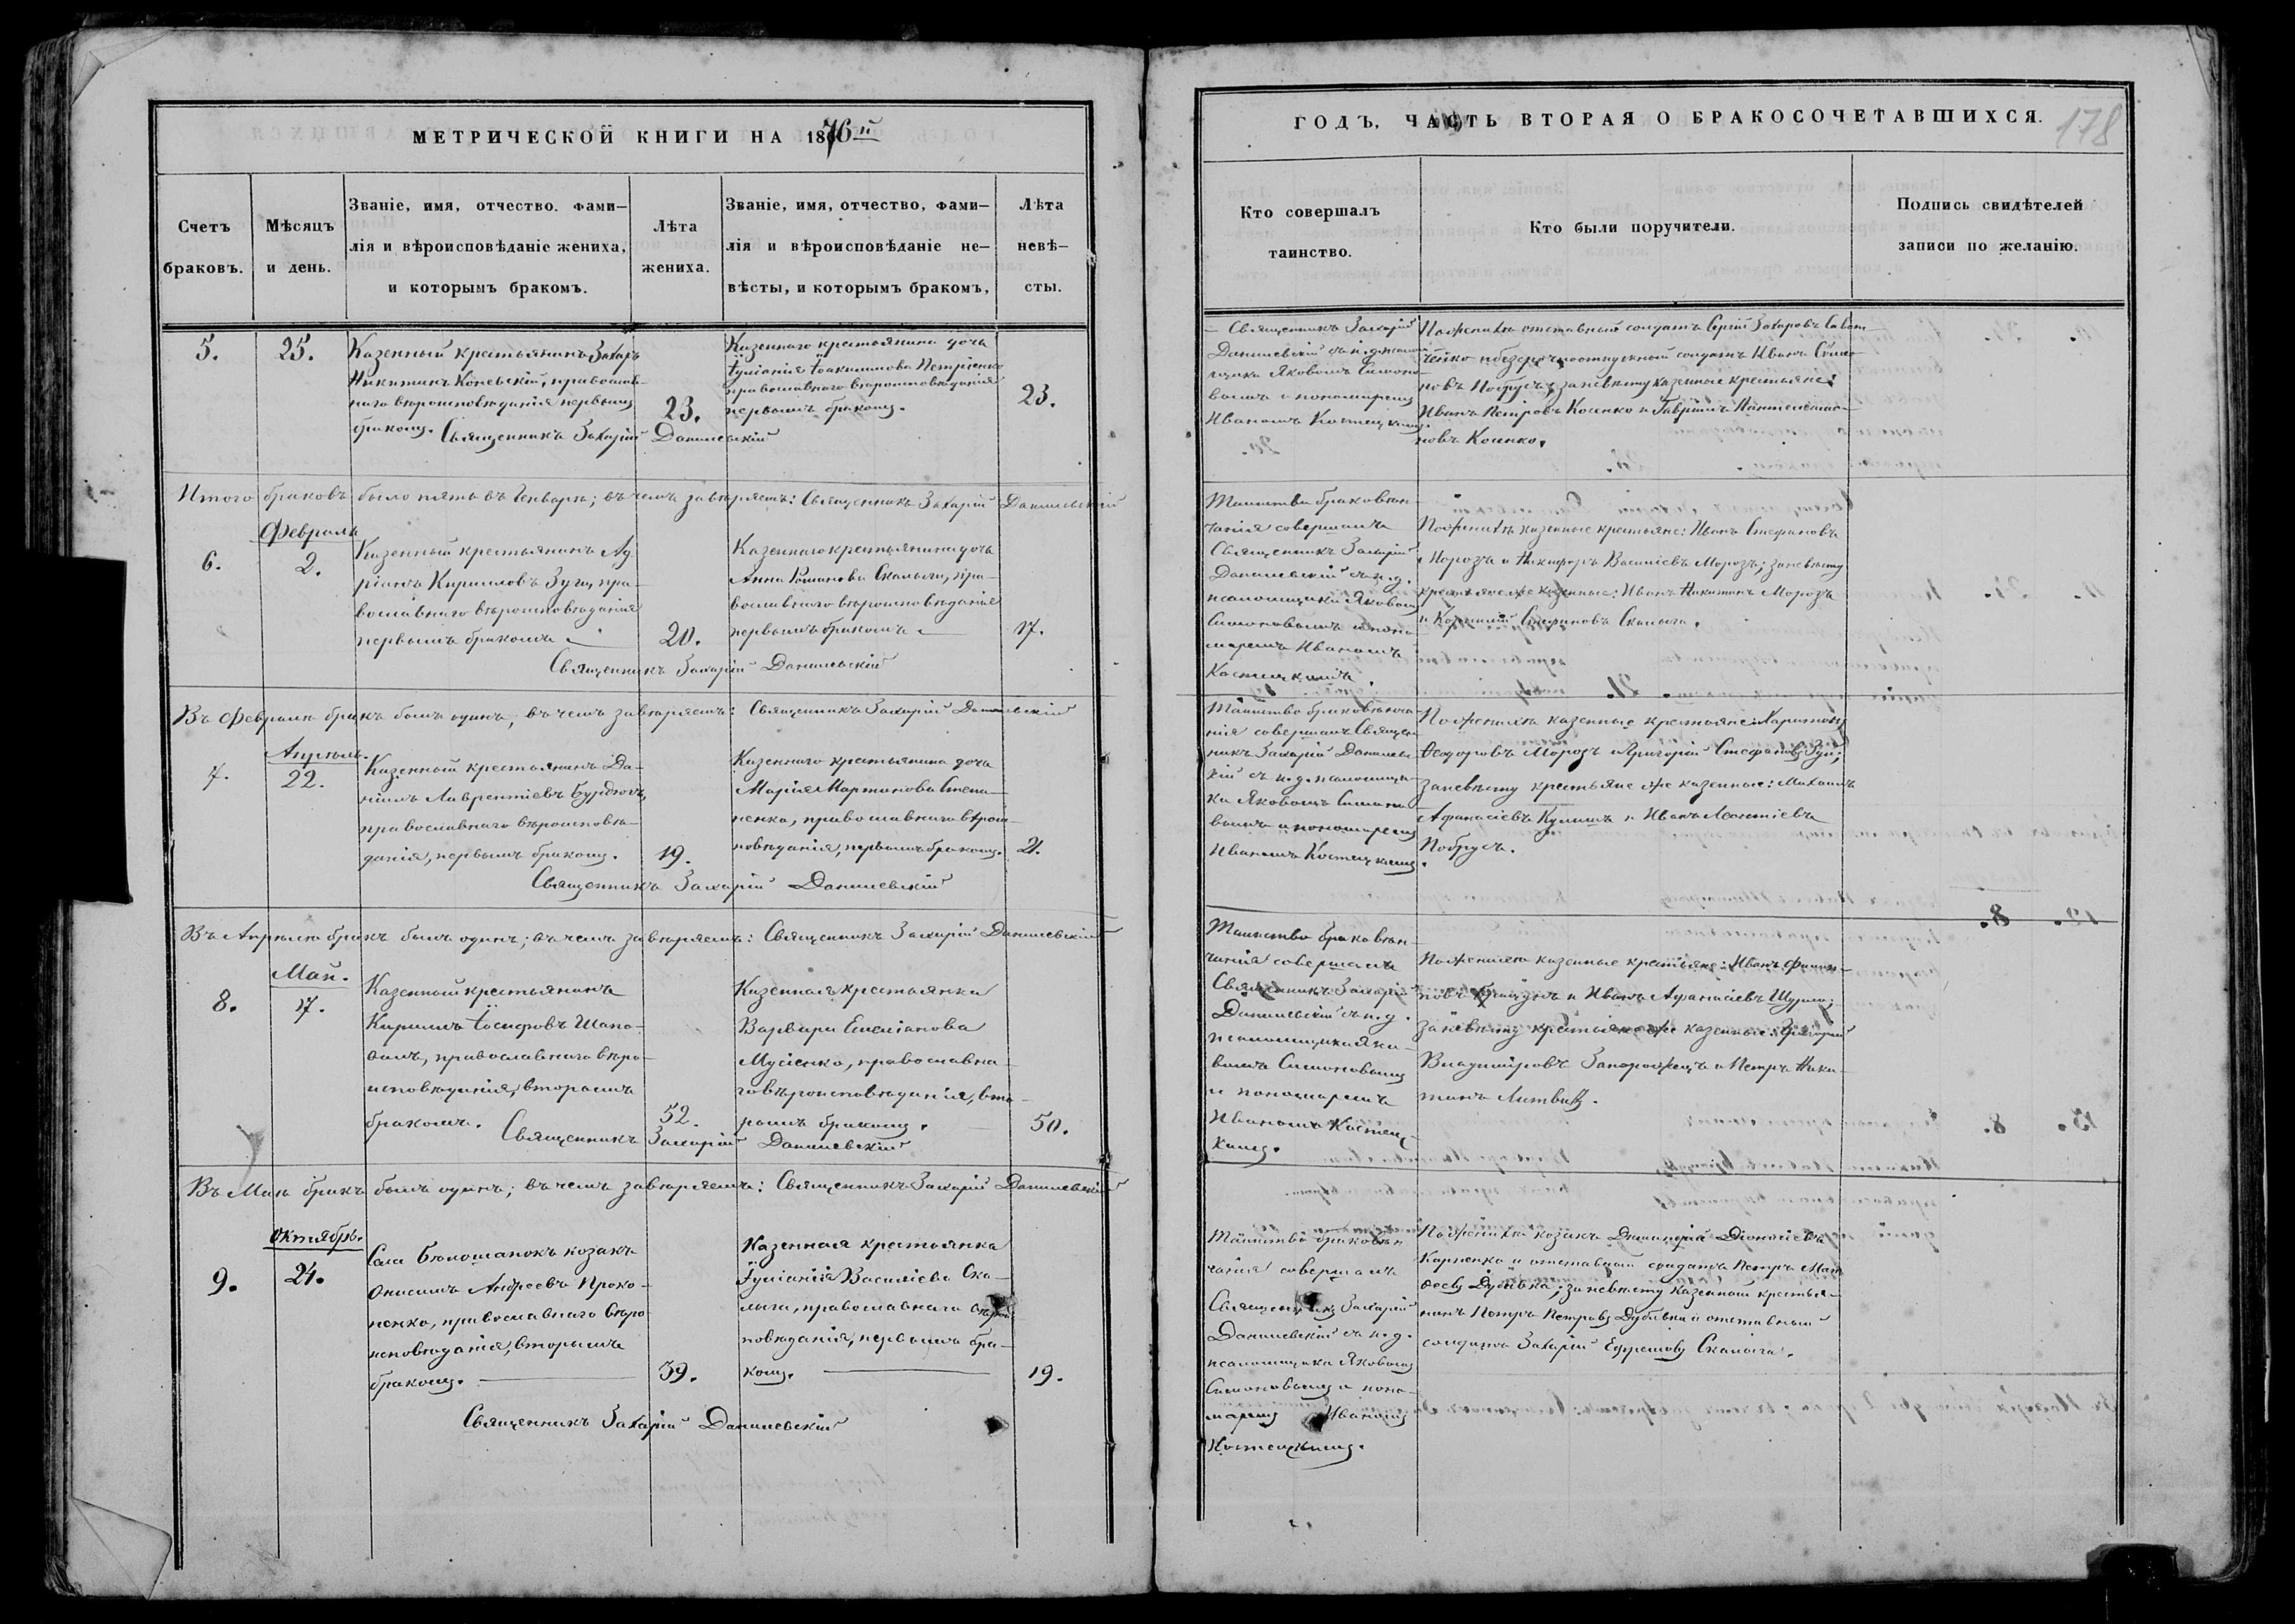 МЕТРИЧЕСКОЙ КНИГИ НА 1876й
Счетъ
браковъ.
Мѣсяцъ
и день.
Званіе, имя, отчество. фами–
лія и вѣроисповѣданіе жениха,
и которымъ бракомъ.
Лѣта
жениха.
Званіе, имя, отчество, фами–
лія и вѣроисповѣданіе не–
вѣсты, и которымъ бракомъ,
Лѣта
невѣ–
сты.
5.
25.
Казенный крестьянинъ Захаръ
Никитинъ Коневскій, православ-
наго вѣроисповѣданія первымъ
бракомъ.
23.
Казеннаго крестьянина дочь
Іуліанія Іоакимова Петріенко
православнаго вѣроисповѣданія
первымъ бракомъ.
23.
Священникъ Захарій Данилевскій
Итого браковъ было пять въ Генварѣ; въ чемъ завѣряемъ: Священникъ Захарій Данилевскій
Февраль
6.
2.
Казенный крестьянинъ Ад
ріанъ Кириловъ Зуга, пра-
вославнаго вѣроисповѣданія
первымъ бракомъ
20.
Казеннаго крестьянина дочь
Анна Романова Скалыга, пра-
вославнаго вѣроисповѣданія
первымъ бракомъ
17.
Священникъ Захарій Данилевскій
Въ Февралѣ бракъ былъ одинъ; въ чемъ завѣряемъ: Священникъ Захарій Данилевскій
Апрѣль.
7.
22.
Казенный крестьянинъ Да-
ніилъ Лаврентіевъ Бурдюгъ,
православнаго вѣроисповѣ-
данія, первымъ бракомъ.
19.
Казеннаго крестьянина дочь
Марія Мартинова Степа-
ненко, православнаго вѣроис-
повѣданія, первымъ бракомъ.
21.
Священникъ Захарій Данилевскій
Въ Апрѣлѣ бракъ былъ одинъ; въ чемъ завѣряемъ: Священникъ Захарій Данилевскій
Май.
8.
17.
Казенный крестьянинъ
Кирилъ Іосифовъ Шапо-
валъ, православнаго вѣро-
исповѣданія, вторымъ
бракомъ.
52.
Казенная крестьянка
Варвара Емеліанова
Мусіенко, православна-
го вѣроисповѣданія, вто-
рымъ бракомъ.
50.
Священникъ Захарій Данилевскій
Въ Маѣ бракъ былъ одинъ; въ чемъ завѣряемъ: Священникъ Захарій Данилевскій
Октябрь.
9.
24.
Села Бѣлошапокъ козакъ
Онисимъ Андреевъ Проко-
пенко, православнаго вѣро
исповѣданія, вторымъ
бракомъ.
39.
Казенная крестьянка
Іуліанія Василіева Ска-
лыга, православнаго вѣрои
повѣданія, первымъ бра-
комъ.
19.
Священникъ Захарій Данилевскій
ГОДЪ, ЧАСТЬ ВТОРАЯ О БРАКОСОЧЕТАВШИХСЯ.
178
Кто совершалъ
таинство.
Кто были поручители.
Подпись свидѣтелей
записи по желанію.
Священникъ Захарій
Данилевскій съ и.д. псалом-
щика Яковомъ Симоно-
вымъ и пономаремъ
Иваномъ Костецкимъ.
По женихѣ отставный солдатъ Сергій Захаровъ
и безсрочноотпускный солдатъ Иванъ
Побрусъ, за невѣсту казенные крестьяне:
Иванъ Петровъ Коенко и Гавріилъ Пантелеимо-
новъ Коенко.
Таинство браковѣн-
чанія совершалъ
Священникъ Захарій
Данилевскій съ и.д.
псаломщика Яковомъ
Симоновымъ и поно
маремъ Иваномъ
Костецкимъ.
По женихѣ казенные крестьяне: Иванъ Стефановъ
Морозъ и Никифоръ Василіевъ Морозъ; за невѣсту
крестьяне же казенные: Иванъ Никитинъ Морозъ
и Корнилій Стефановъ Скалыга.
Таинство браковѣнча-
нія совершалъ Священ
никъ Захарій Данилевс-
кій съ и.д. псаломщи-
ка Яковомъ Симоно-
вымъ и пономаремъ
Иваномъ Костецкимъ.
По женихѣ казенные крестьяне: Харитонъ
Ѳеодоровъ Морозъ и Григорій Стефановъ Зуй;
за невѣсту крестьяне же казенные: Михаилъ
Афанасіевъ Кулишъ и Иванъ Леонтіевъ
Побрусъ.
Таинство браковѣн-
чанія совершалъ
Священникъ Захарій
Данилевскій съ и.д.
псаломщика Яко-
вомъ Симоновымъ
и пономаремъ
Иваномъ Костец-
кимъ.
По женихѣ казенные крестьяне: Иванъ Филип-
повъ и Иванъ Афанасіевъ Шурло;
за невѣсту крестьяне же казенные: Григорій
Владиміровъ Запорожецъ и Петръ Ники-
тинъ Литвинъ.
Таинство браковѣн
чанія совершалъ
Священникъ Захарій
Данилевскій съ и.д.
псаломщика Яковомъ
Симоновымъ и поно-
маремъ Иваномъ
Костецкимъ.
По женихѣ козакъ Діонисіевъ
Карпенко и отставный солдатъ Петръ Мат
ѳеевъ Дубивка; за невѣсту казенный крестья-
нинъ Петръ Петровъ Дубивка и отставный
солдатъ Захарій Ефремовъ Скалыга.